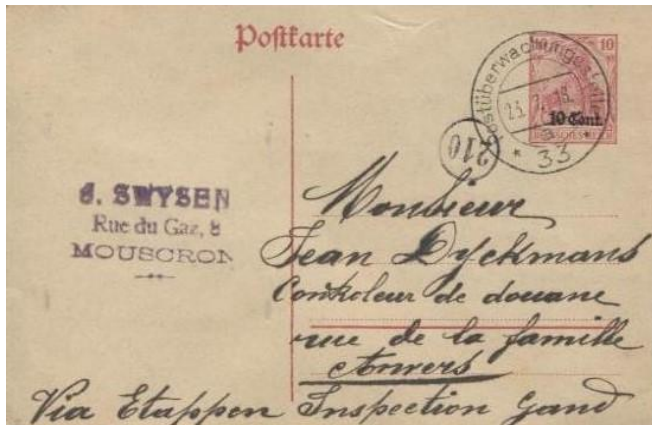 Postkarte
Postüberwachungsstelle
33
10
10 Cent.
DEUTSCHES REICH
210
S. SWYSEN
Rue du Gaz, 8
MOUSCRON
Monsieur
Jean Dyckmans
Controleur de douane
rue de la famille
Anvers
Via Etappen Inspection Gand